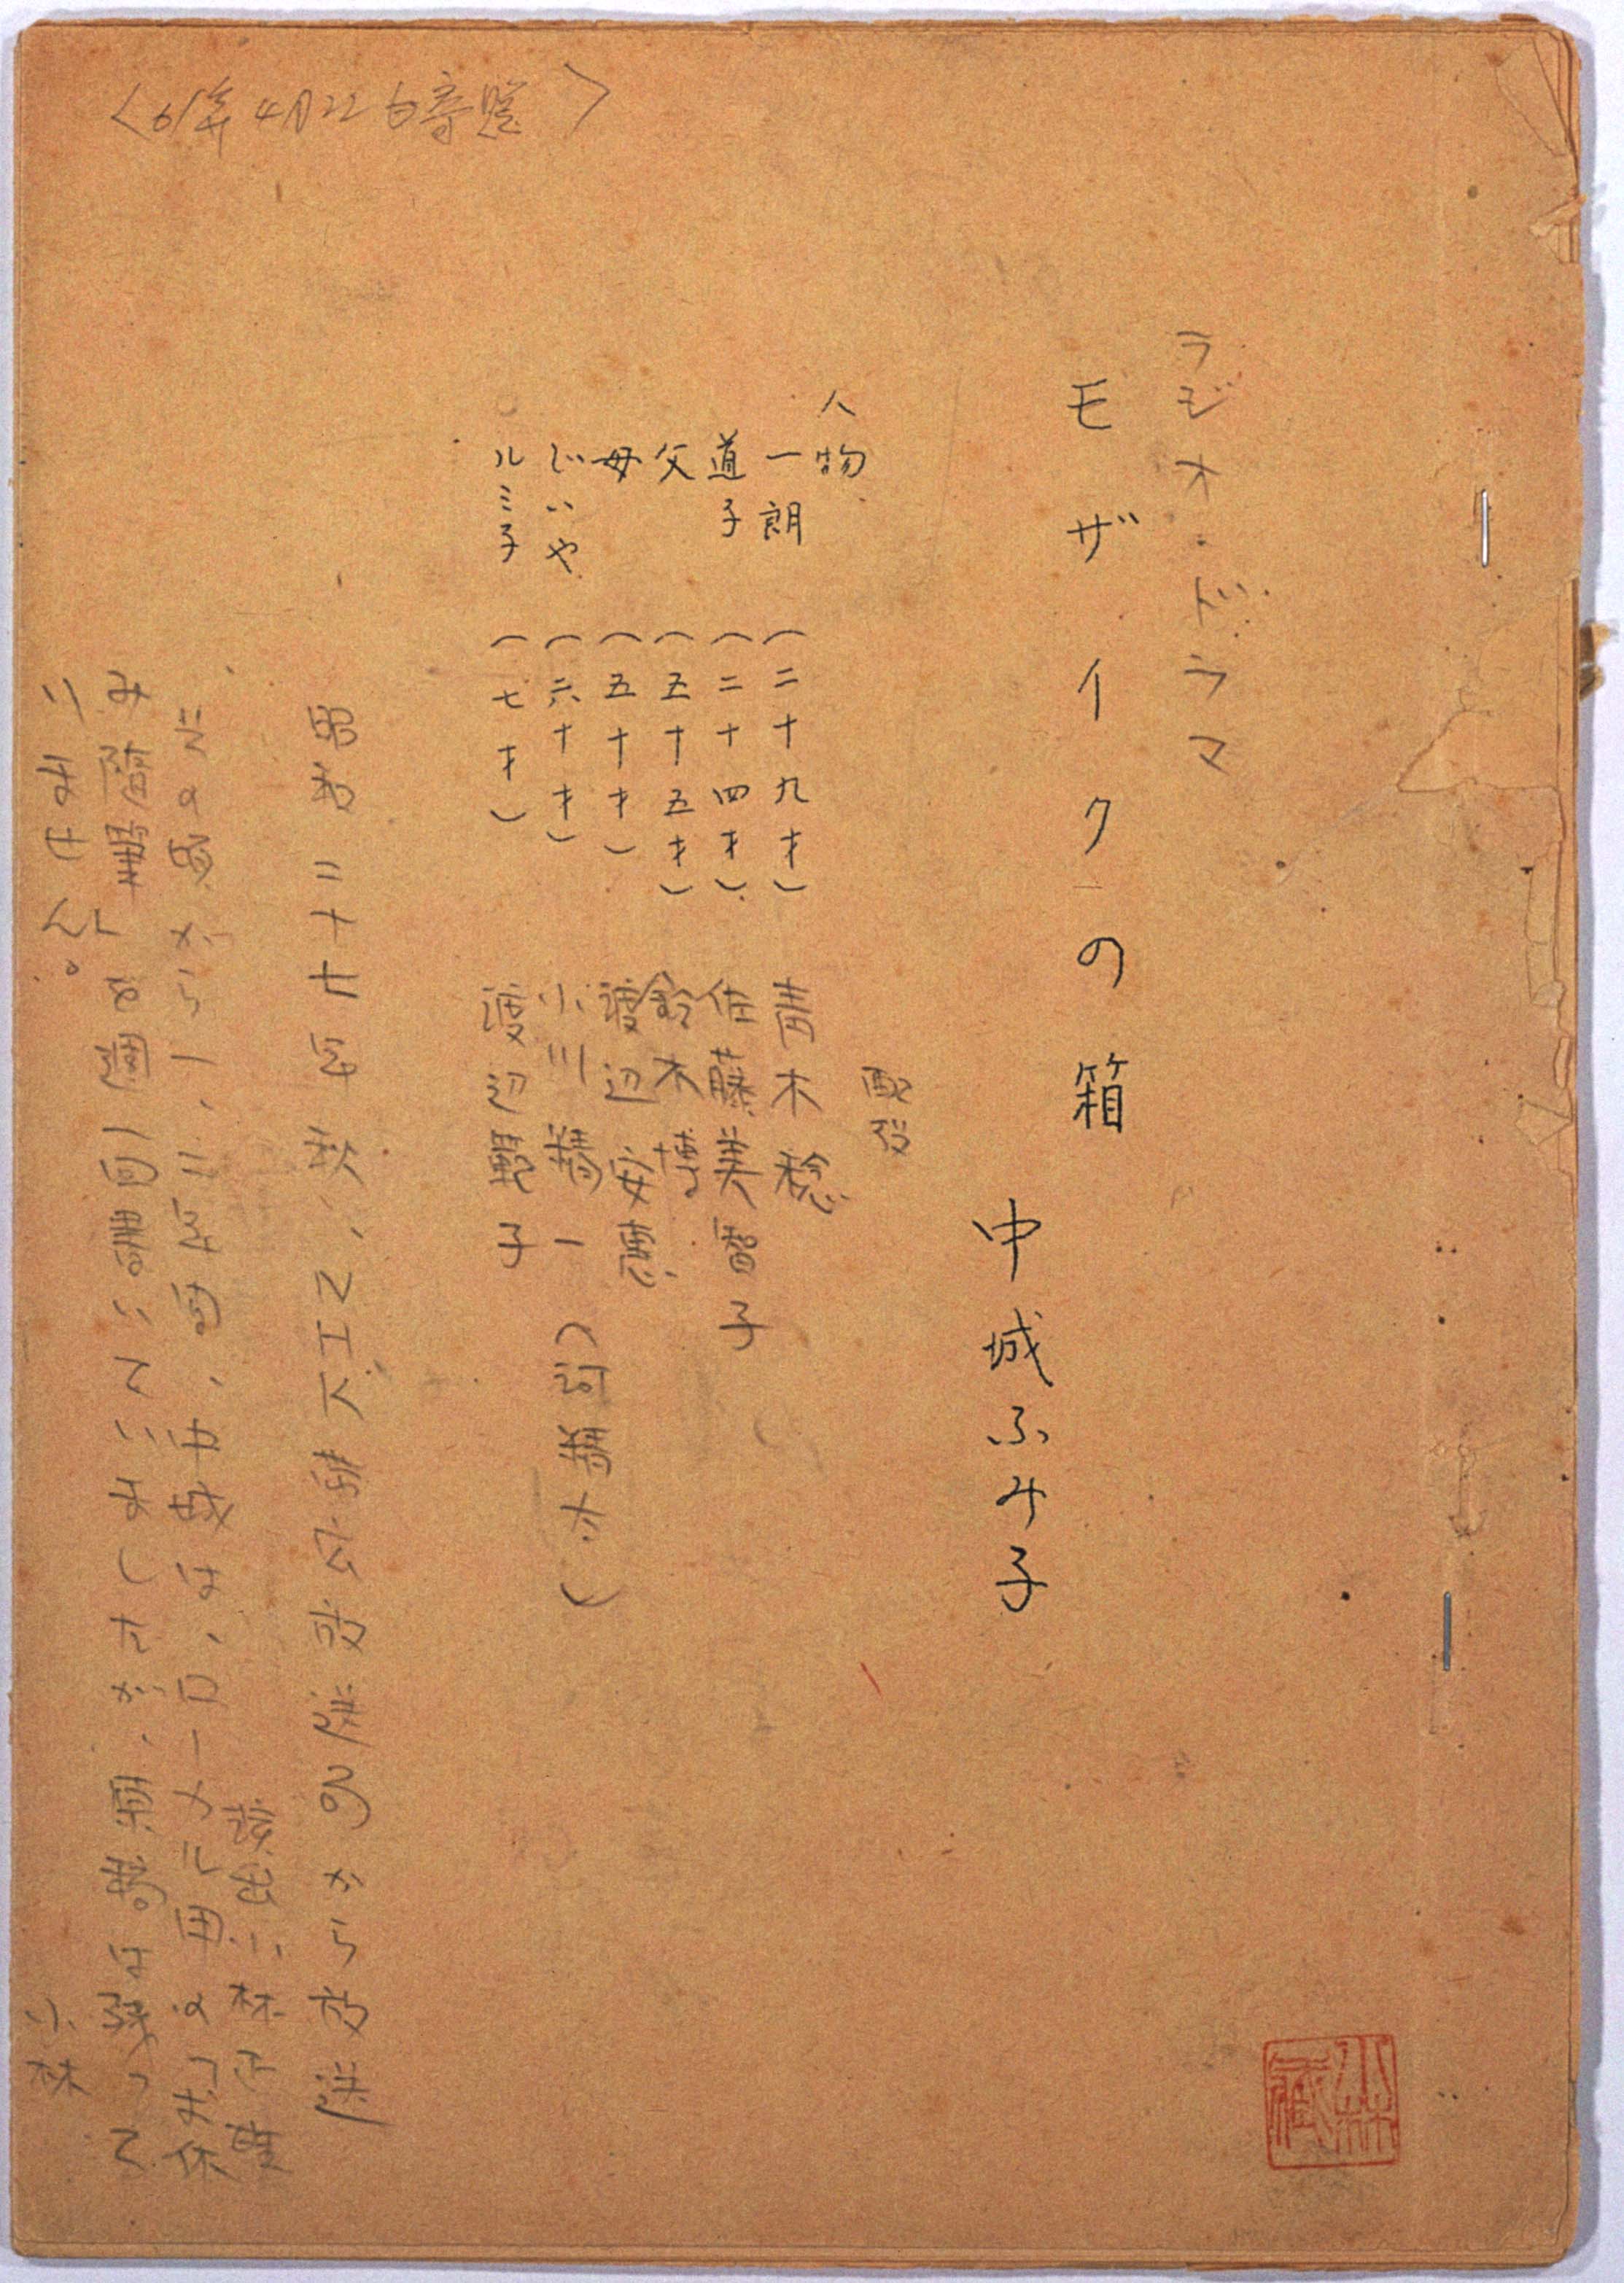 〈61年4月22日寄贈〉
ラジオ・ドラマ
モザイクの箱
中城ふみ子
配役
人物
一朗 (二十九才) 青木稔
道子 (二十四才) 佐藤美智子
父 (五十五才) 鈴木博
母 (五十才) 渡辺安恵
じいや (六十才) 小川精一 (河精太)
ルミ子 (七才) 渡辺範子
昭和二十七年秋、NHK帯広放送局から放送
演出小林正雄
其の頃から一、二年間、中城は、ローカル用の「お休
み随筆」を週一回書いていましたが、原稿は残って
いません。
小林
小林